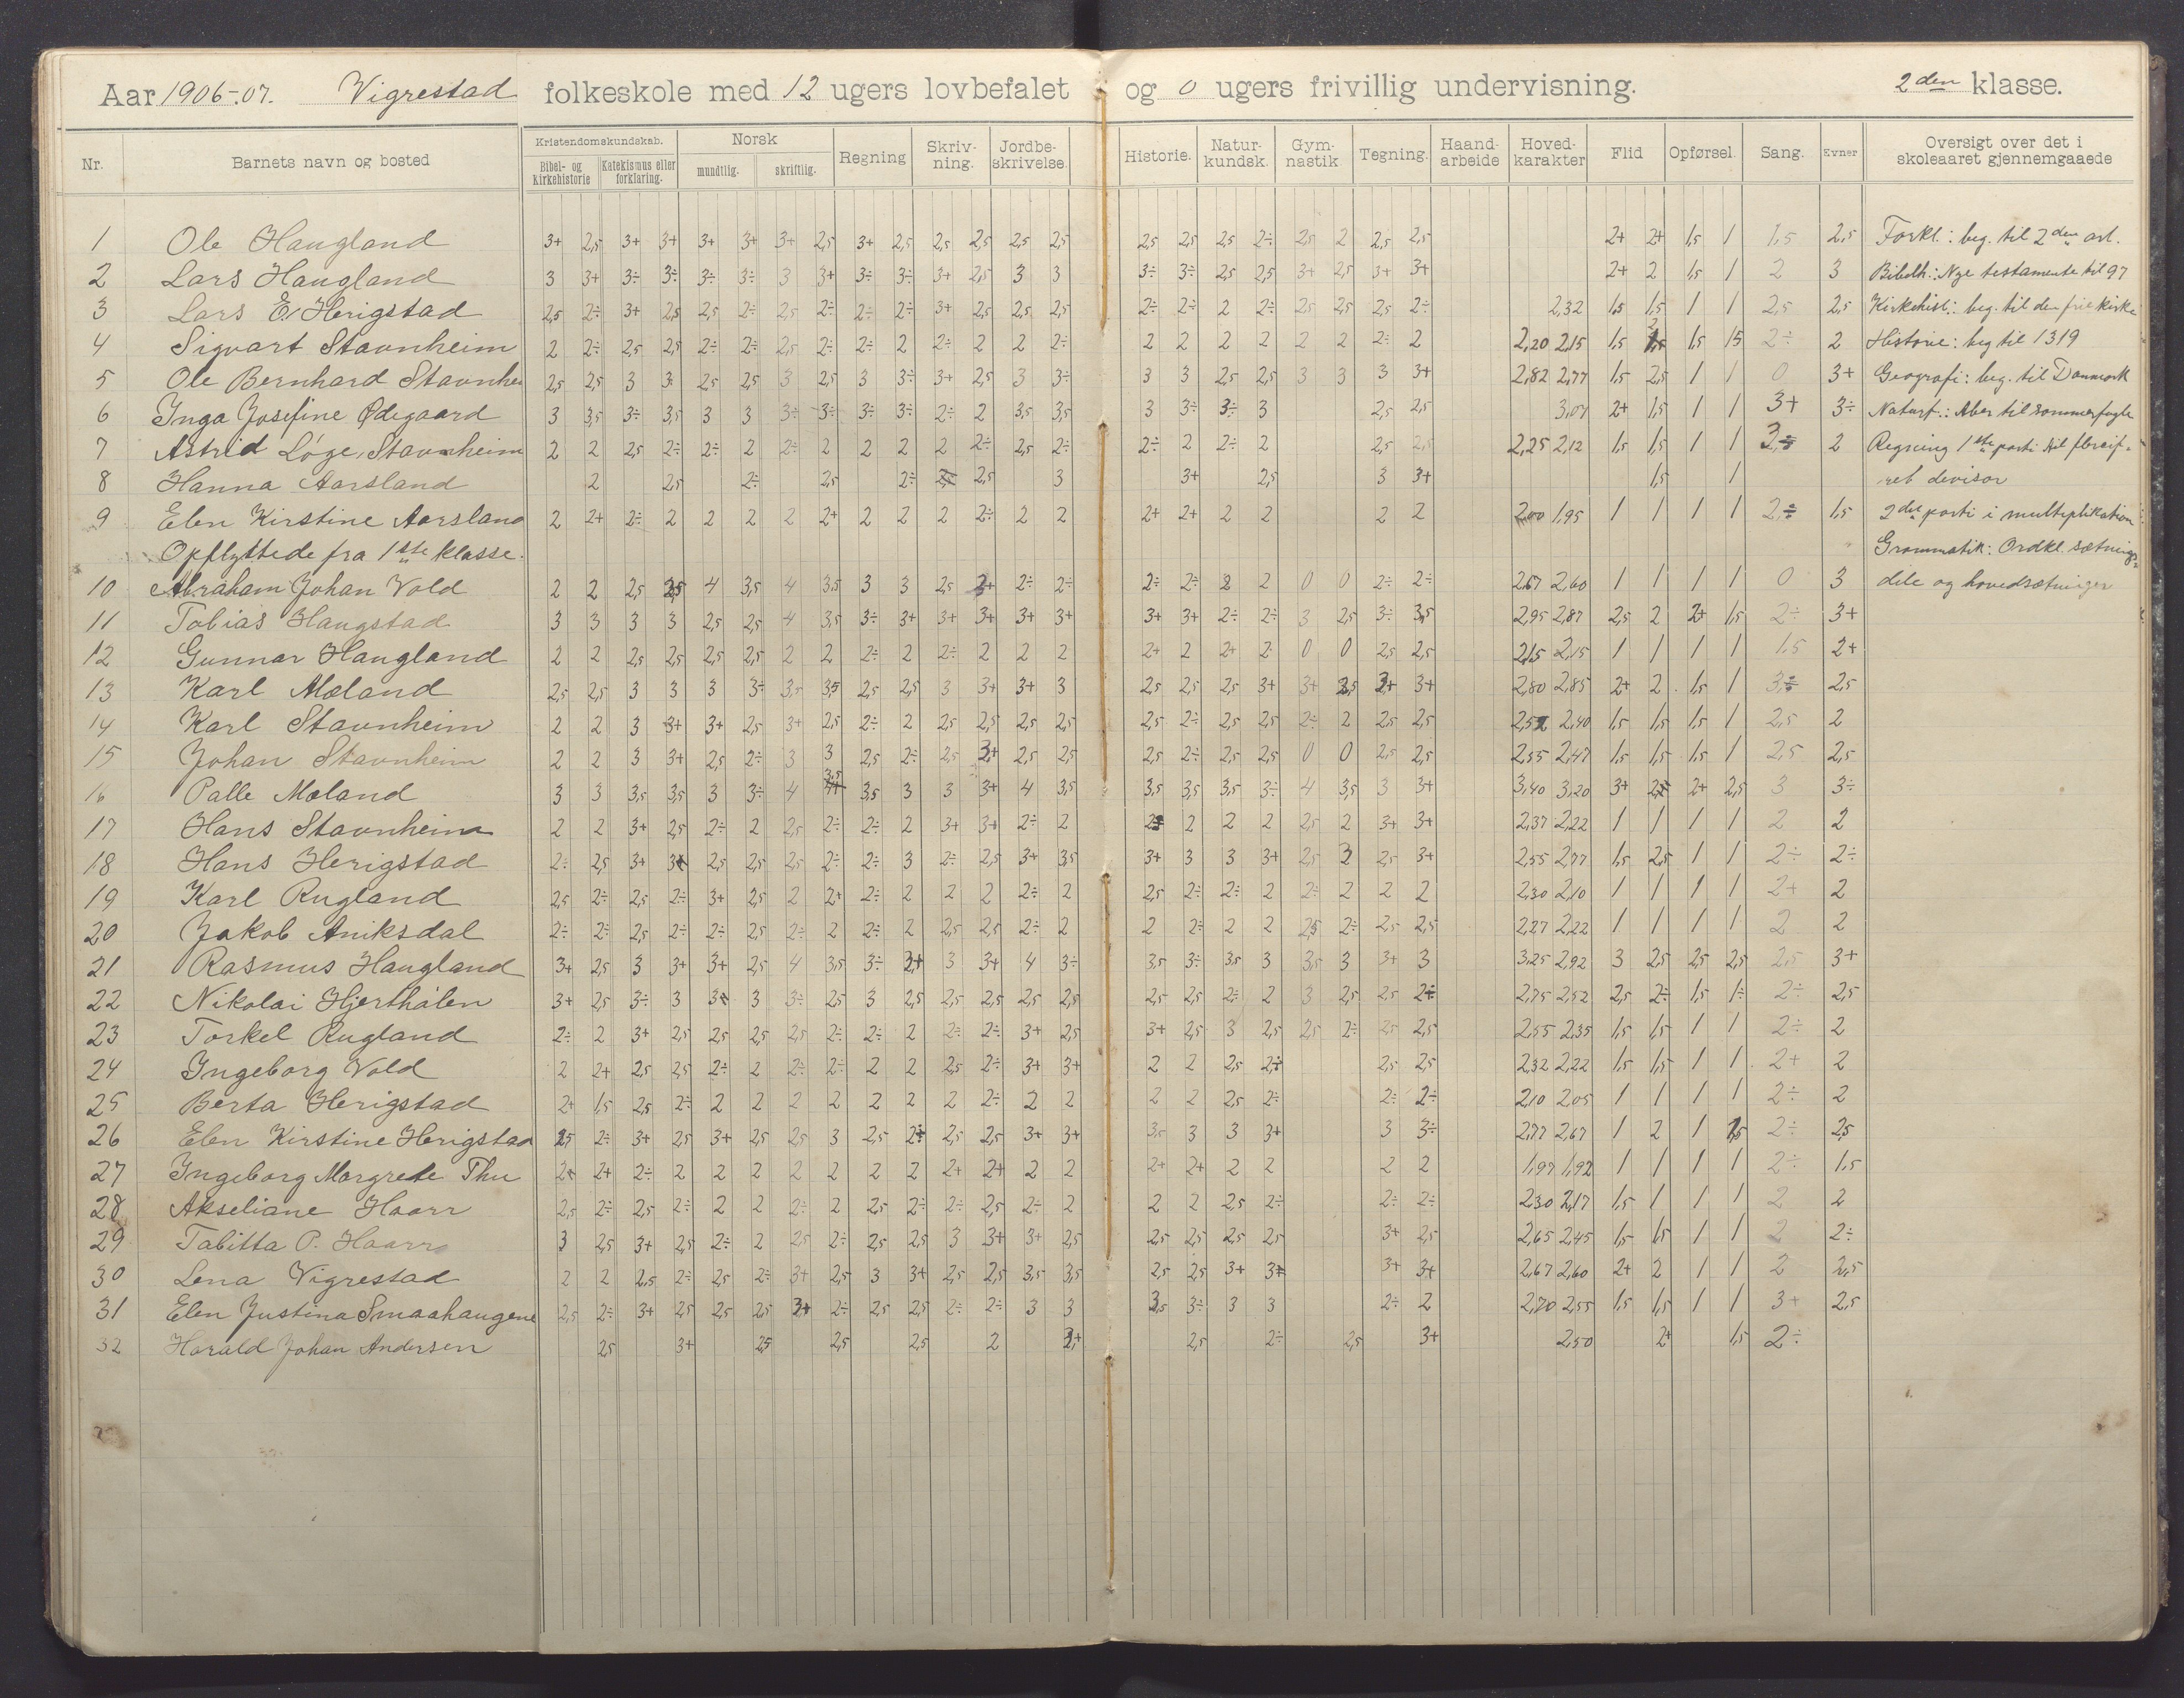 Aar 1906-07. Vigrestad folkeskole med 12 ugers lovbefalet og 0 ugers frivillig undervisning. 2den klasse.
Nr. Barnets navn og bosted Kristendomskundskab. Bibel- og Kirkehistorie Katekismus eller forklaring. Norsk mundtlig. skriftlig. Regning Skriv-ning. Jordbe-skrivelse. Historie. Natur-kundsk. Gym-nastik Tegning. Haand-arbeide Hoved-karakter Flid Opførsel. Sang. Evner Oversigt over det i skoleaaret gjennemgaaede
1 Ole Haugland 3+ 2,5 3+ 3+ 3+ 3+ 3+ 2,5 3+ 2,5 2,5 2,5 2,5 2,5 2,5 2,5 2,5 2÷ 2,5 2 2,5 2,5 2+ 2+ 1,5 1 1,5 2,5 Forkl.: beg. til 2den art.
2 Lars Haugland 3 3+ 3÷ 3÷ 3÷ 3÷ 3 3+ 3÷ 3÷ 3+ 2,5 3 3 3÷ 3÷ 2,5 2,5 3+ 2,5 3+ 3+ 2+ 2 1,5 1 2 3 Bibelh.: Nye testamente til 97
3 Lars E. Herigstad 2,5 2÷ 3+ 2,5 2,5 2÷ 2,5 2÷ 2÷ 2÷ 3+ 2,5 2,5 2,5 2÷ 2÷ 2 2÷ 2,5 2,5 2,5 2÷ 2,32 1,5 1,5 1 1 2,5 2,5 Kirkehist.: beg. til den frie kirke
4 Sigvart Stavnheim 2 2÷ 2,5 2,5 2÷ 2÷ 2,5 2÷ 2÷ 2 2÷ 2 2 2÷ 2 2 2 2 2 2 2÷ 2 2,20 2,15 1,5 2 1,5 15 2÷ 2 Historie: beg til 1319
5 Ole Bernhard Stavnhei 2,5 2,5 3 3 2,5 2,5 3 2,5 3 3÷ 3+ 2,5 3 3÷ 3 3 2,5 2,5 3 3 3 3+ 2,82 2,77 1,5 2,5 1 1 0 3+ Geografi: beg. til Danmark
6 Inga Josefine Ødegaard 3 3,5 3÷ 3,5 3 3 3÷ 3÷ 3÷ 3÷ 2÷ 2 3,5 3,5 3 3÷ 3÷ 3 2,5 2,5 3,07 2+ 1,5 1 1 3+ 3÷ Naturf.: Aber til sommerfugle
7 Astrid Løge, Stavnheim 2 2 2,5 2÷ 2÷ 2 2÷ 2 2 2 2 2÷ 2,5 2÷ 2÷ 2 2÷ 2 2,5 2,5 2,25 2,12 1,5 1,5 1 1 2 Regning 1ste parti til flercif-
8 Hanna Aarsland 2 2,5 2÷ 2,5 2÷ 2,5 3 3+ 2,5 3 3+ 1,5 1 ret devisor
9 Elen Kirstine Aarsland 2 2+ 2÷ 2 2 2 2 2+ 2 2 2 2÷ 2 2 2+ 2+ 2 2 2 2 2,00 1,95 1 1 1 1 2÷ 1,5 2det parti i multiplikation
Opflyttede fra 1ste klasse. Grammatik: Ordkl. sætnings-
10 Abraham Johan Vold 2 2 2,5 2,5 4 3,5 4 3,5 3 3 2,5 3+ 2÷ 2÷ 2÷ 2÷ 2 2 0 0 2÷ 2÷ 2,67 2,60 1 1 1 1 0 3 dele og hovedsætninger
11 Tobias Haugstad 3 3 3 3 2,5 2,5 4 3,5 3÷ 3+ 3+ 3+ 3+ 3+ 3+ 3+ 2÷ 2÷ 3 2,5 3÷ 3,5 2,95 2,87 2,5 2 2+ 1,5 2÷ 3+
12 Gunnar Haugland 2 2 2,5 2,5 2,5 2,5 2 2 2÷ 2 2÷ 2 2 2 2+ 2 2+ 2 0 0 2,5 2,5 2,15 2,15 1 1 1 1 1,5 2+
13 Karl Mæland 2,5 2,5 3 3 3 3÷ 3,5 3,5 2,5 2,5 3 3+ 3+ 3 2,5 2,5 2,5 3+ 3+ 3,5 3+ 3+ 2,80 2,85 2+ 2 1,5 1 3÷ 2,5
14 Karl Stavnheim 2 2 3 3+ 3+ 2,5 3+ 2,5 2÷ 2 2,5 2,5 2,5 2,5 2,5 2÷ 2,5 2,5 2÷ 2 2,5 2,5 2,52 2,40 1,5 1,5 1,5 1 2,5 2
15 Johan Stavnheim 2 2 3 3+ 2,5 2÷ 3 3 2,5 2÷ 2,5 3+ 2,5 2,5 2,5 2÷ 2,5 2,5 0 0 2,5 2,5 2,55 2,47 1,5 1,5 1,5 1 2,5 2,5
16 Palle Mæland 3 3 3,5 3,5 3 3÷ 4 3,5 3,5 3 3 3+ 4 3,5 3,5 3,5 3,5 3÷ 4 3,5 3 3+ 3,40 3,20 3+ 2+ 2,5 3 3÷
17 Hans Stavnheim 2 2 3+ 2,5 2÷ 2 2,5 2÷ 2÷ 2 3+ 3+ 2÷ 2 2 2 2 2,5 2 3+ 3+ 2,37 2,22 1 1 1 1 2 2
18 Hans Herigstad 2÷ 2,5 3+ 3+ 2,5 2,5 2,5 2÷ 2÷ 3 2÷ 2,5 3+ 3,5 3+ 3 3 3+ 2,5 2 2,5 3+ 2,55 2,77 1,5 2,5 1 1 2÷ 2÷
19 Karl Rugland 2,5 2÷ 2,5 2÷ 3+ 2,5 2 2+ 2÷ 2 2 2 2÷ 2 2,5 2÷ 2÷ 2 2÷ 2 2 2 2,30 2,10 1 1 1 1 2+ 2
20 Jakob Aniksdal 2÷ 2÷ 2,5 2÷ 2÷ 2,5 2÷ 2 2÷ 2 2,5 2,5 2÷ 2 2 2÷ 2 2 2,5 2÷ 2,5 2,5 2,27 2,22 1 1 1 1 2 2
21 Rasmus Haugland 3+ 2,5 3 3+ 3+ 2,5 4 3,5 3÷ 3+ 3 3+ 4 3÷ 3,5 3÷ 3,5 3 3,5 3 3+ 3 3,25 2,92 3 2,5 2,5 2,5 2,5 3+
22 Nikolai Hjerthålen 3+ 2,5 3÷ 3 3 3÷ 2,5 3 2,5 2,5 2,5 2,5 2,5 2,5 2,5 2÷ 2 3 2,5 2,5 2÷ 2,75 2,52 2,5 2÷ 1,5 1÷ 2÷ 2,5
23 Torkel Rugland 2÷ 2 3+ 2,5 2,5 2,5 2,5 2÷ 2÷ 2 2÷ 2÷ 3+ 2,5 3+ 2,5 3 2,5 2,5 2÷ 2,5 2,5 2,55 2,35 1,5 1,5 1 1 2÷ 2
24 Ingeborg Vold 2 2+ 2,5 2,5 2÷ 2 2÷ 2÷ 2 2 2,5 2÷ 3+ 3+ 2 2 2,5 2÷ 2,5 2,5 2,32 2,22 1,5 1,5 1 1 2+ 2
25 Berta Herigstad 2+ 1,5 2,5 2÷ 2 2 2 2 2 2 2 2÷ 2 2 2 2 2,5 2÷ 2÷ 2÷ 2,10 2,05 1 1 1 1 2÷ 2
26 Elen Kirstine Herigstad 2,5 2÷ 3+ 2,5 3+ 2,5 2,5 3 2,5 2÷ 2,5 2,5 3+ 3+ 3,5 3 3 3+ 3 3÷ 2,77 2,67 1 2 1 1,5 2÷ 2,5
27 Ingeborg Margrete Thu 2+ 2÷ 2 2 2 2 2 2 2 2+ 2+ 2 2 2+ 2+ 2 2 2 2 1,97 1,92 1 1 1 1 2÷ 1,5
28 Akseliane Haarr 2,5 2÷ 2,5 2÷ 2 2 2÷ 2 2,5 2÷ 2÷ 2,5 2÷ 2 2 2 2,5 2÷ 2÷ 2÷ 2,30 2,17 1,5 1 1 1 2 2
29 Tabitta P. Haarr 3 2,5 3+ 2,5 2÷ 2 2,5 2÷ 2,5 2,5 3 3+ 3+ 2,5 2,5 2,5 2,5 2,5 3+ 2,5 2,65 2,45 1,5 1,5 1 1 2 2÷
30 Lena Vigrestad 2 2 2,5 2÷ 2,5 2÷ 3+ 2,5 3 3+ 2,5 2,5 3,5 3,5 2,5 2,5 3+ 3+ 3+ 3+ 2,67 2,60 2+ 2 1 1 2 2,5
31 Elen Justina Smaahaugene 2,5 2÷ 3+ 2,5 2,5 2,5 3+ 2÷ 2,5 2,5 2÷ 2÷ 3 3 3,5 3÷ 3 3 2÷ 2 2,70 2,55 1,5 1,5 1 1 3+ 2,5
32 Harald Johan Andersen 2,5 3+ 2,5 2,5 2,5 2 2,5 2÷ 2,5 3+ 2,50 2+ 1,5 2÷